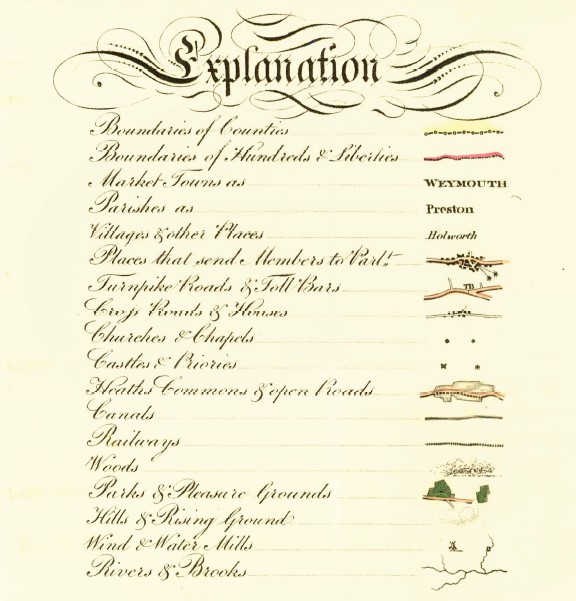 Explanation
Boundaries of Counties
Boundaries of Hundreds & Liberties
Market Towns as WEYMOUTH
Parishes as Preston
Villages & other Places Holworth
Places that send Members to Parlt.
Turnpike Roads & Toll Bars TB
Cross Roads & Houses
Churches & Chapels
Castles & Priories
Heaths Commons & open Roads
Canals
Railways
Woods
Parks & Pleasure Grounds
Hills & Rising Ground
Wind & Water Mills
Rivers & Brooks